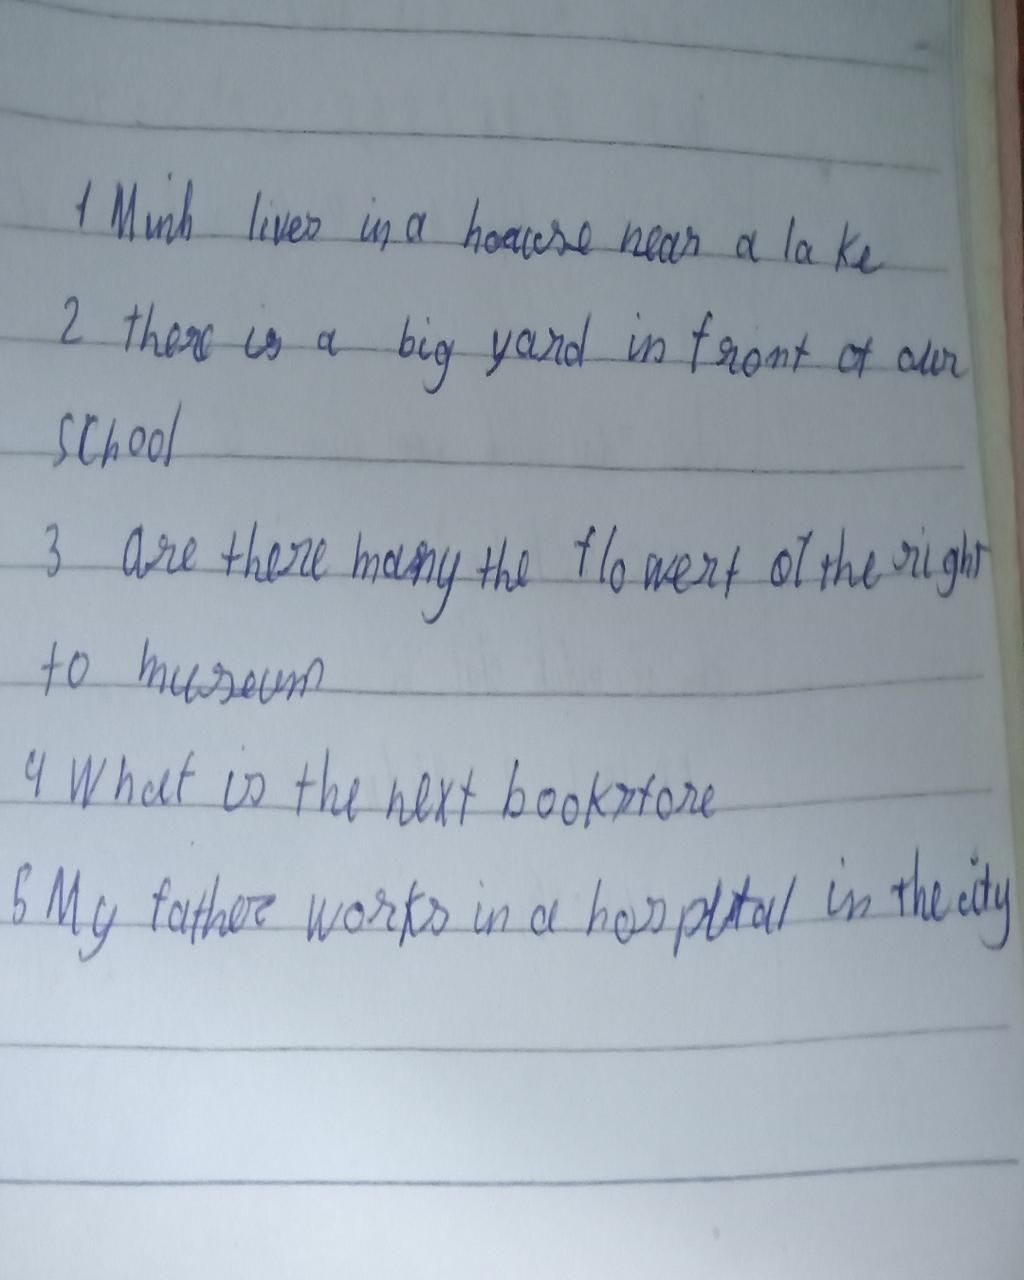 1 Minh lives in a hoause near a lake
2 there is a big yard in front of our
school
3 are there many the flowert of the right
to museum
4 What is the next bookstore
5 My father works in a hospital in the city